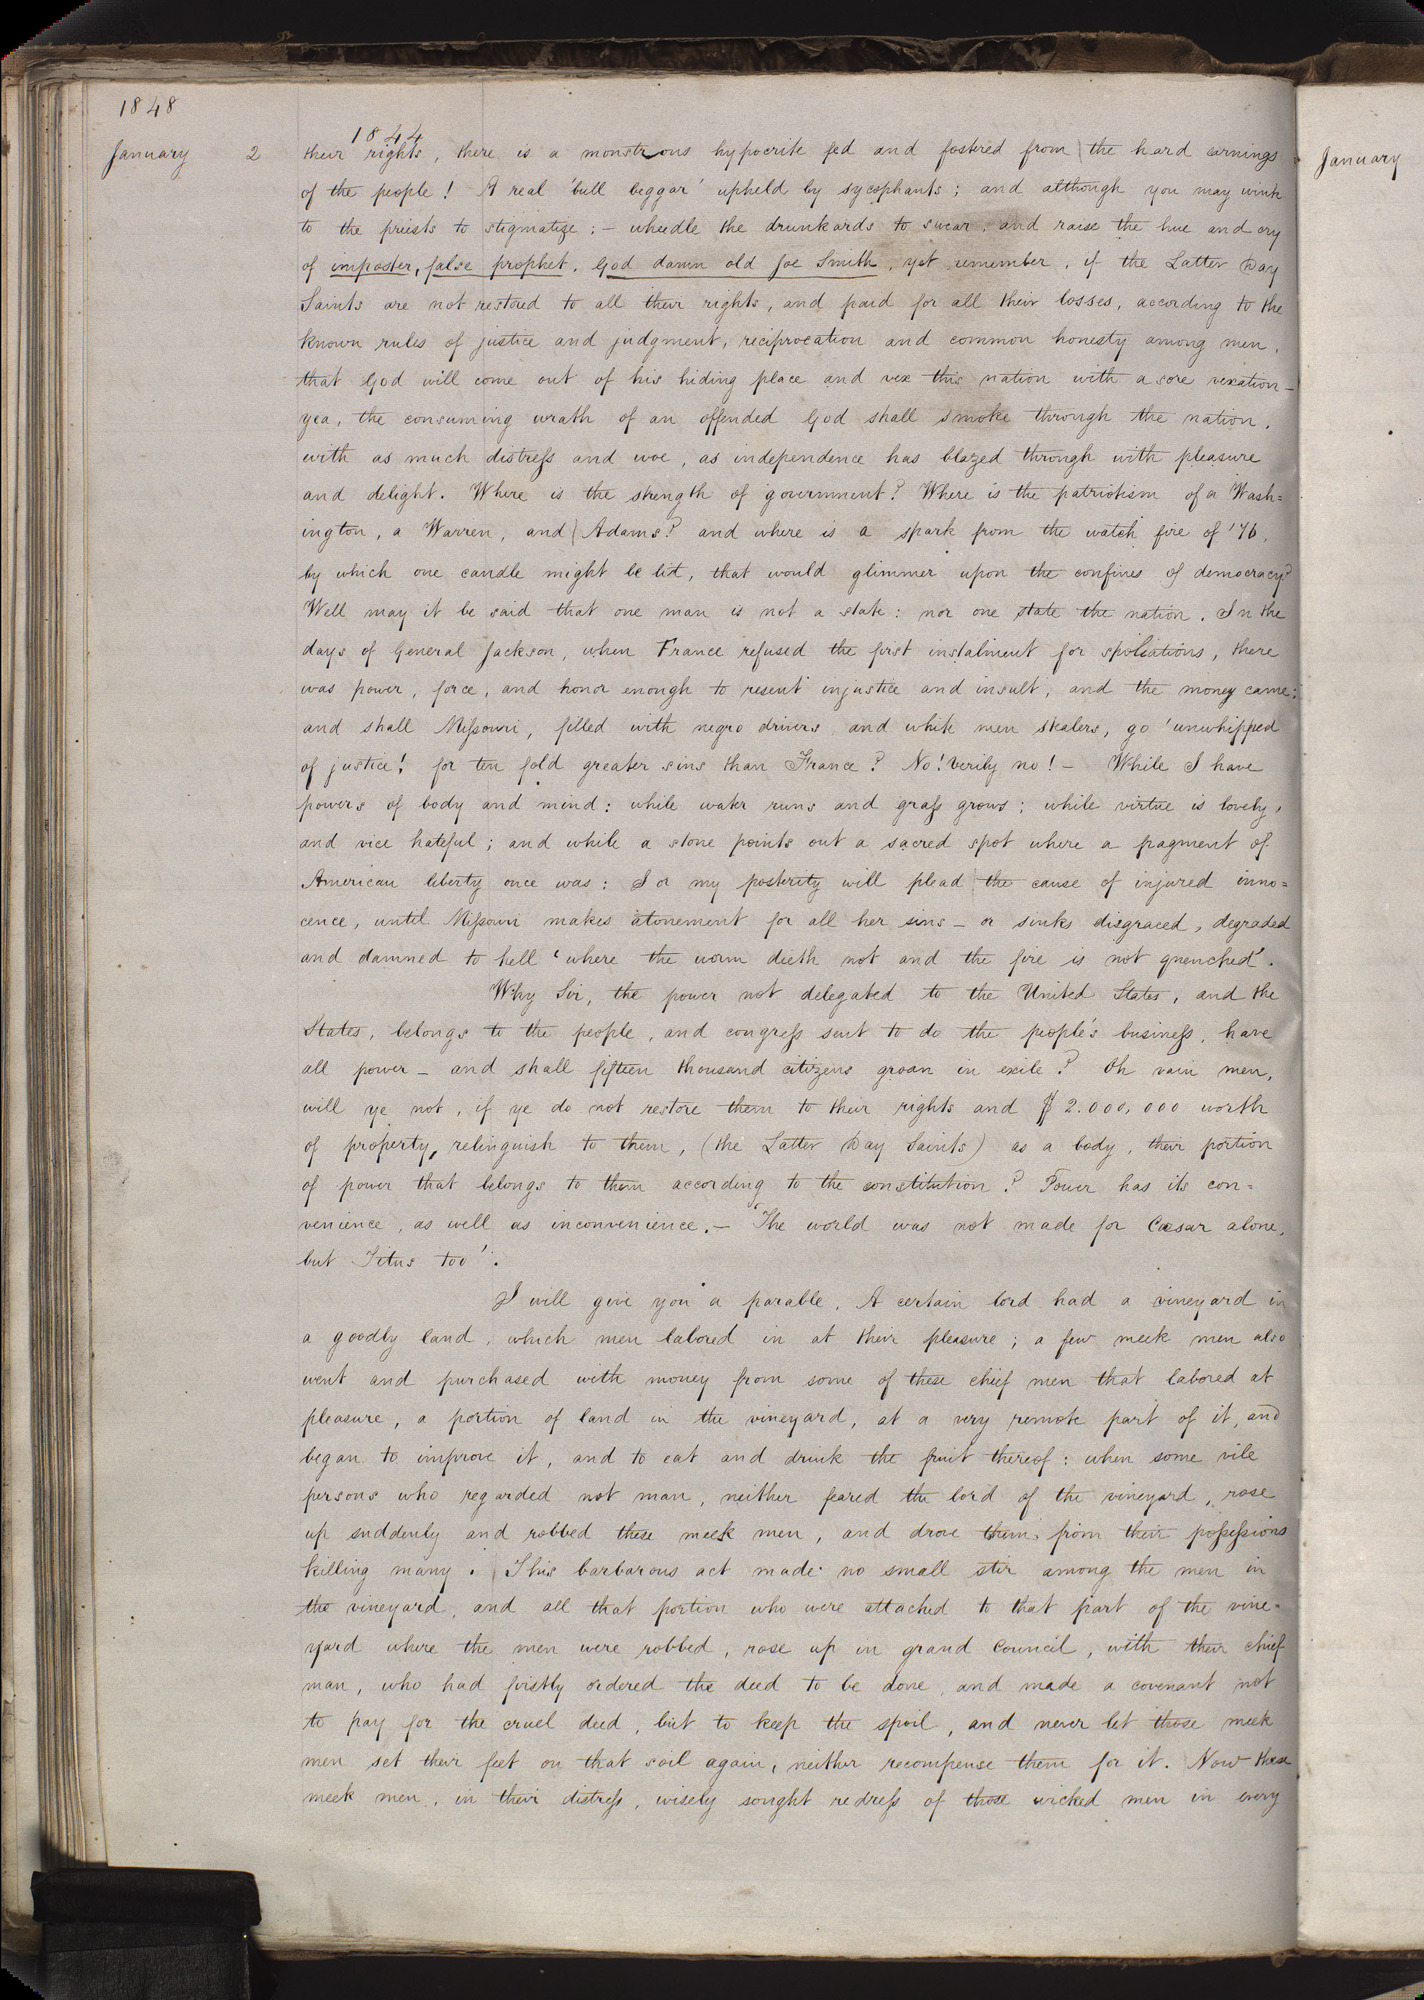 1848
January 2
1844
their rights, there is a monstrous hypocrite fed and fostred from the hard earnings
of the people! A real 'bull beggar' upheld by sycophants; and although you may wink
to the priests to stigmatize; – wheedle the drunkards to swear, and raise the hue and cry
of imposter, false prophet, God damn old Joe Smith, yet remember, if the Latter Day
Saints are not restored to all their rights, and paid for all their losses, according to the
known rules of justice and judgment, reciprocation and common honesty among men,
that God will come out of his hiding place and vex this nation with a sore vexation –
yea, the consuming wrath of an offended God shall smoke through the nation,
with as much distress and woe, as independence has blazed through with pleasure
and delight. Where is the strength of government? Where is the patriotism of a Wash=
ington, a Warren, and Adams? and where is a spark from the watch fire of '76,
by which one candle might be lit, that would glimmer upon the confines of democracy?
Well may it be said that one man is not a state: nor one state the nation. In the
days of General Jackson, when France refused the first instalment for spoliations, there
was power, force, and honor enough to resent injustice and insult, and the money came:
and shall Missouri, filled with negro drivers and white men stealers, go 'unwhipped
of justice'! for ten fold greater sins than France? No! Verily no! – While I have
powers of body and mind: while water runs and grass grows; while virtue is lovely,
and vice hateful; and while a stone points out a sacred spot where a fragment of
American liberty once was: I or my posterity will plead the cause of injured inno=
cence, until Missouri makes atonement for all her sins – or sinks disgraced, degraded
and damned to hell 'where the worm dieth not and the fire is not quenched'.
Why Sir, the power not delegated to the United States, and the
States, belongs to the people, and congress sent to do the people's business, have
all power – and shall fifteen thousand citizens groan in exile? Oh vain men,
will ye not, if ye do not restore them to their rights and $2.000,000 worth
of property, relinquish to them, (the Latter Day Saints) as a body, their portion
of power that belongs to them according to the constitution? Power has its con=
venience, as well as inconvenience. – 'The world was not made for Cæsar alone,
but Titus too'.
I will give you a parable. A certain lord had a vineyard in
a goodly land, which men labored in at their pleasure; a few meek men also
went and purchased with money from some of these chief men that labored at
pleasure, a portion of land in the vineyard, at a very remote part of it, and
began to improve it, and to eat and drink the fruit thereof: when some vile
persons who regarded not man, neither feared the lord of the vineyard, rose
up suddenly and robbed these meek men, and drove them from their possessions
killing many. This barbarous act made no small stir among the men in
the vineyard, and all that portion who were attached to that part of the vine=
yard where the men were robbed, rose up in grand council, with their chief
man, who had firstly ordered the deed to be done, and made a covenant not
to pay for the cruel deed, but to keep the spoil, and never let those meek
men set their feet on that soil again, neither recompense them for it. Now these
meek men, in their distress, wisely sought redress of those wicked men in every
January